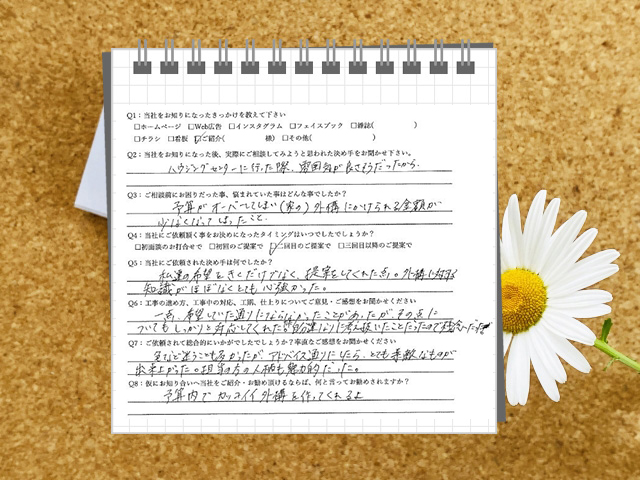 Q1：当社をお知りになったきっかけを教えて下さい
□ホームページ □Web広告 □インスタグラム □フェイスブック □雑誌( )
□チラシ □看板 ☑ご紹介( 様) □その他( )
Q2：当社をお知りになった後、実際にご相談してみようと思われた決め手をお聞かせ下さい。
ハウジングセンターに行った際、雰囲気が良さそうだったから.
Q3：ご相談前にお困りだった事、悩まれていた事はどんな事でしたか？
予算がオーバーしてしまい(家の)外構にかけられる金額が
少なくなってしまったこと.
Q4：当社にご依頼頂く事をお決めになったタイミングはいつでしたでしょうか？
□初面談のお打合せで □初回のご提案で ☑二回目のご提案で □三回目以降のご提案で
Q5：当社にご依頼された決め手は何でしたか？
私達の希望をきくだけでなく、提案をしてくれた点。外構に対する
知識がほぼなくとても心強かった。
Q6：工事の進め方、工事中の対応、工期、仕上りについてご意見・ご感想をお聞かせください
一点、希望していた通りにならなかったことがあったが、その点に
ついてもしっかりと対応してくれた
Q7：ご依頼されて総合的にいかがでしたでしょうか？率直なご感想をお聞かせください
迷うことも多かったが、アドバイス通りにしたら、とても素敵なものが
出来上がった。担当の方の人柄も魅力的だった。
Q8：仮にお知り合いへ当社をご紹介・お勧め頂けるならば、何と言ってお勧めされますか？
予算内でカッコイイ外構を作ってくれるよ